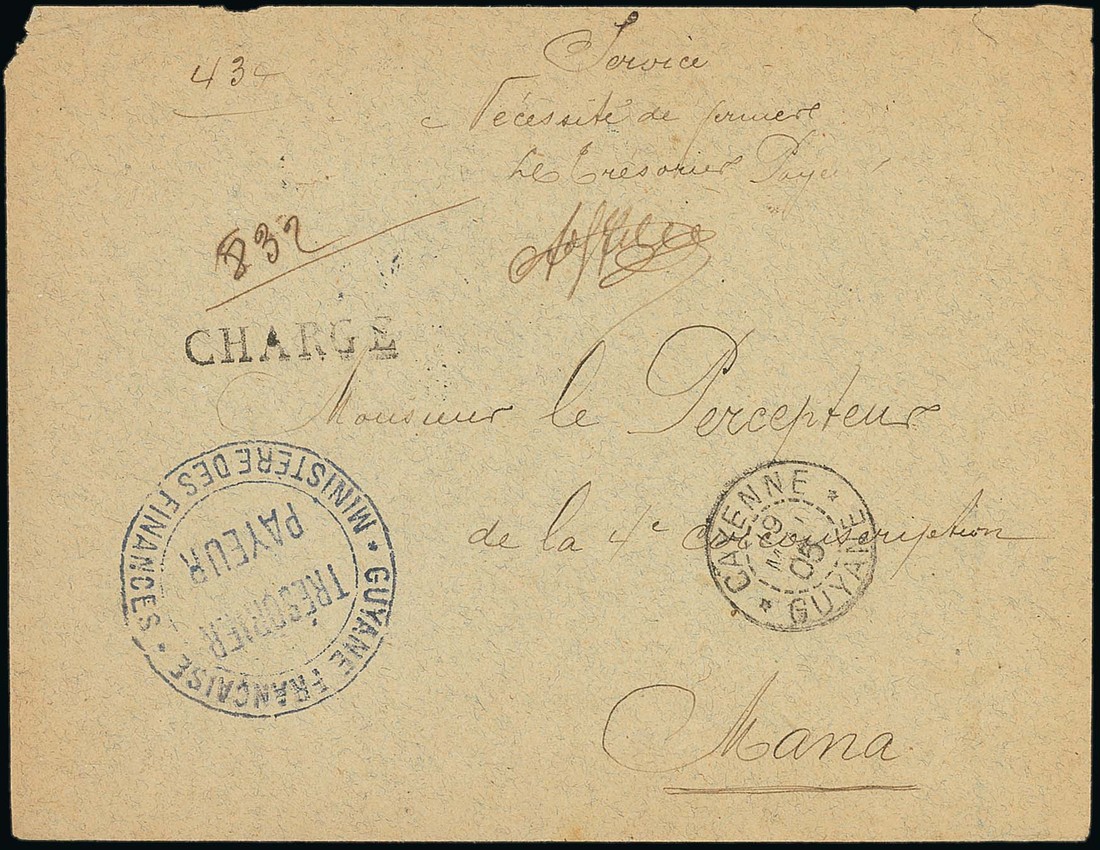 Service
Nécessité de fermer
Le Trésorier Paye
832
CHARGE
Monsieur le Percepteur
de la 4e circonscription
Mana
* CAYENNE * GUYANE
05
* MINISTERE DES FINANCES * GUYANE FRANÇAISE
TRÉSORIER
PAYEUR